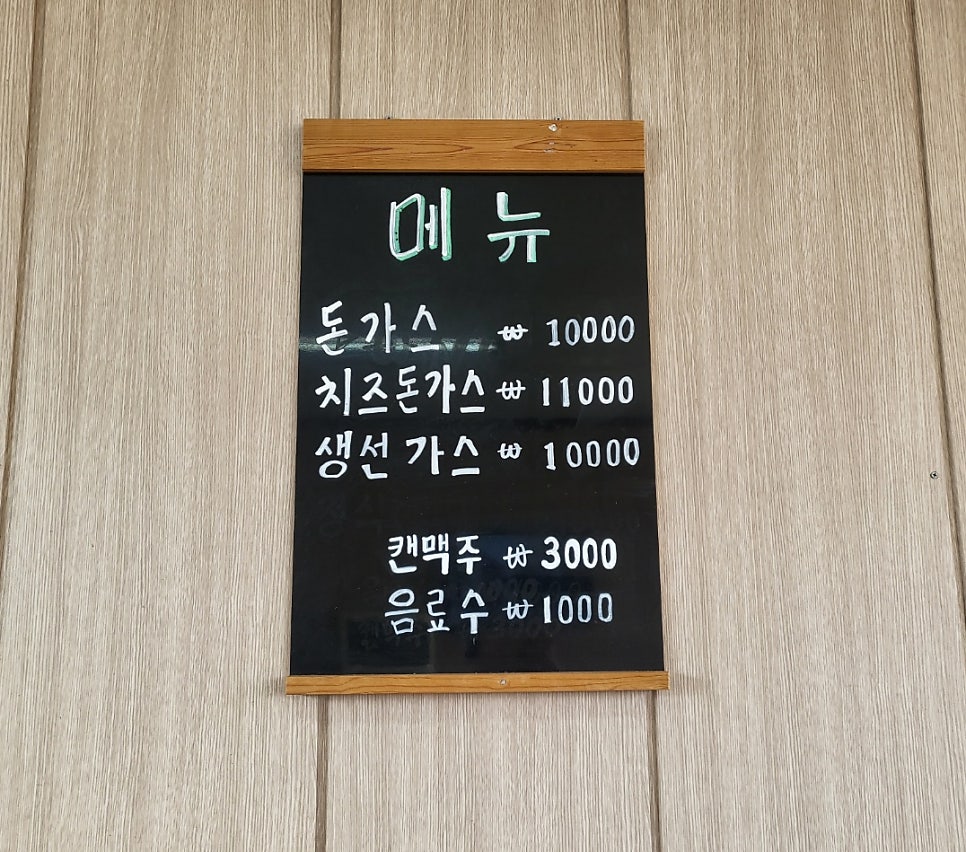 메뉴
돈가스 ₩ 10000
치즈돈가스 ₩ 11000
생선가스 ₩ 10000
캔맥주 ₩ 3000
음료수 ₩ 1000